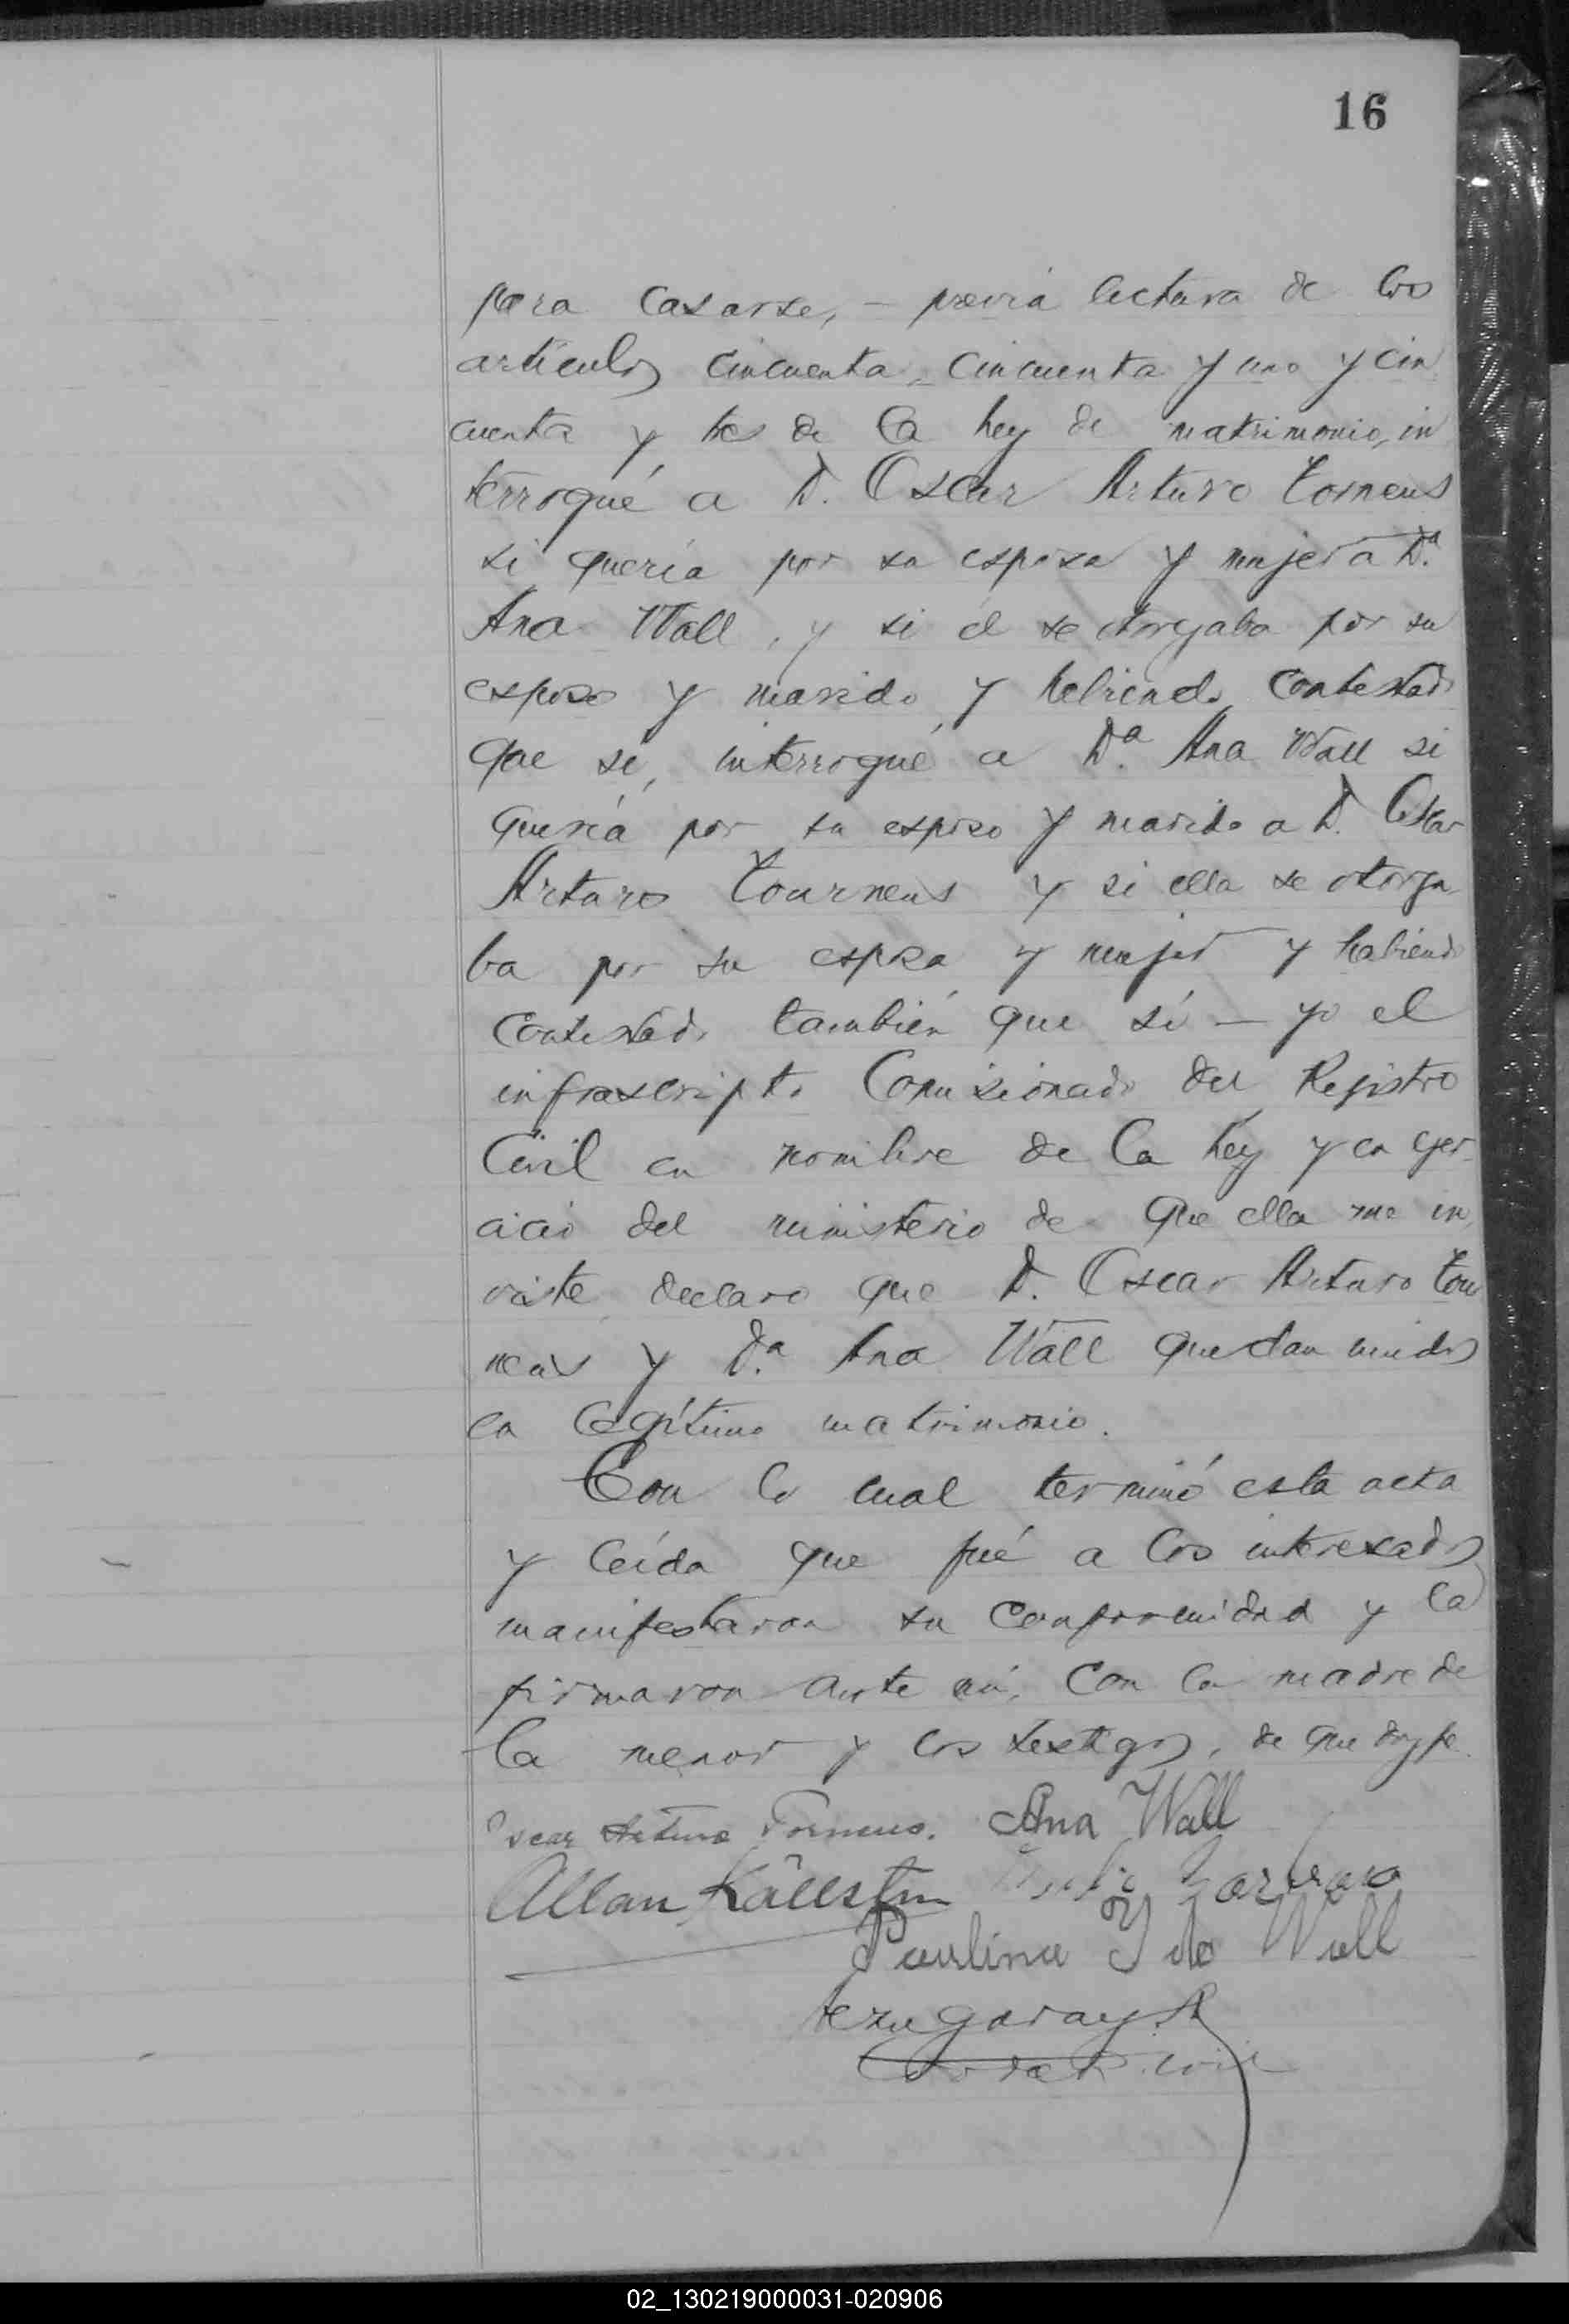 16
para casarse, — previa lectura de los
artículos cincuenta, cincuenta y uno y cin
cuenta y tres de la Ley de matrimonio, in
terrogué a D. Oscar Arturo Torneus
si quería por su esposa y mujer a Dª
Ana Wall, y si él se otorgaba por su
esposo y marido, y habiendo contestado
que sí, interrogué a Dª Ana Wall si
quería por su esposo y marido a D. Oscar
Arturo Tourneus y si ella se otorga
ba por su esposa y mujer y habiendo
contestado también que sí — yo el
infrascripto Comisionado del Registro
Civil en nombre de la Ley y en ejer
cicio del ministerio de que ella me in
viste, declaro que D. Oscar Arturo Tour
neus y Dª Ana Wall quedan unidos
en legítimo matrimonio.
Con lo cual terminó esta acta
y leída que fué a los interesados
manifestaron su conformidad y la
firmaron ante mí, con la madre de
la menor y los testigos, de que doy fe.
Oscar Arturo Torneus. Ana Wall
Allan Källstin
Paulina Y de Wall
02_130219000031-020906